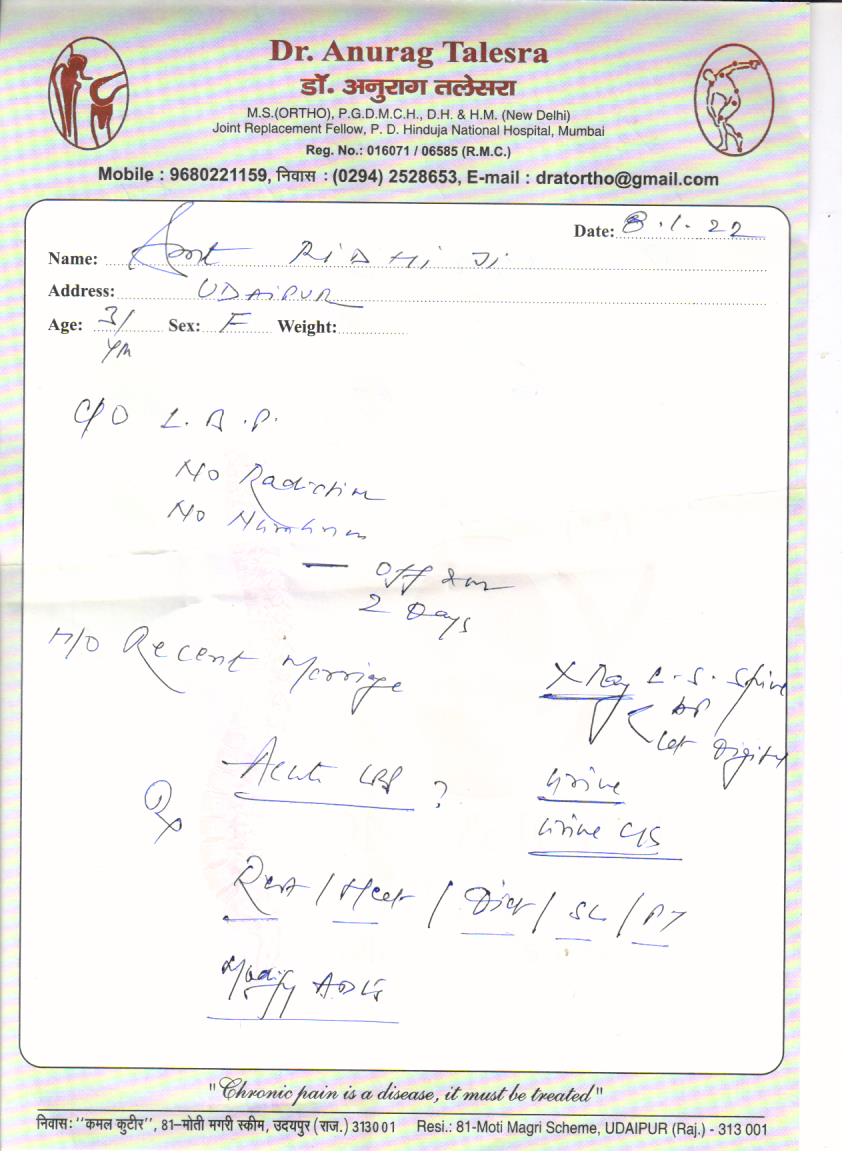 Dr. Anurag Talesra
डॉ. अनुराग तलेसरा
M.S.(ORTHO), P.G.D.M.C.H., D.H. & H.M. (New Delhi)
Joint Replacement Fellow, P. D. Hinduja National Hospital, Mumbai
Reg. No.: 016071 / 06585 (R.M.C.)
Mobile : 9680221159, निवास : (0294) 2528653, E-mail : dratortho@gmail.com
Date: 8.1.22
Name: RiDHi Ji
Address: UDAiPUR
Age: 31/ Sex: F Weight:
C/O L.B.P.
No Radiation
No Numbness
— Off &
2 Days
H/O Recent Marriage
X Ray L.S. Spine
AP
Lat Digital
Acute LBP ?
Urine
Rx
Urine C/S
Rest / Heat / Diet / SL / PT
Modify ADLs
"Chronic pain is a disease, it must be treated"
निवास: ''कमल कुटीर'', 81–मोती मगरी स्कीम, उदयपुर (राज.) 313001 Resi.: 81-Moti Magri Scheme, UDAIPUR (Raj.) - 313 001